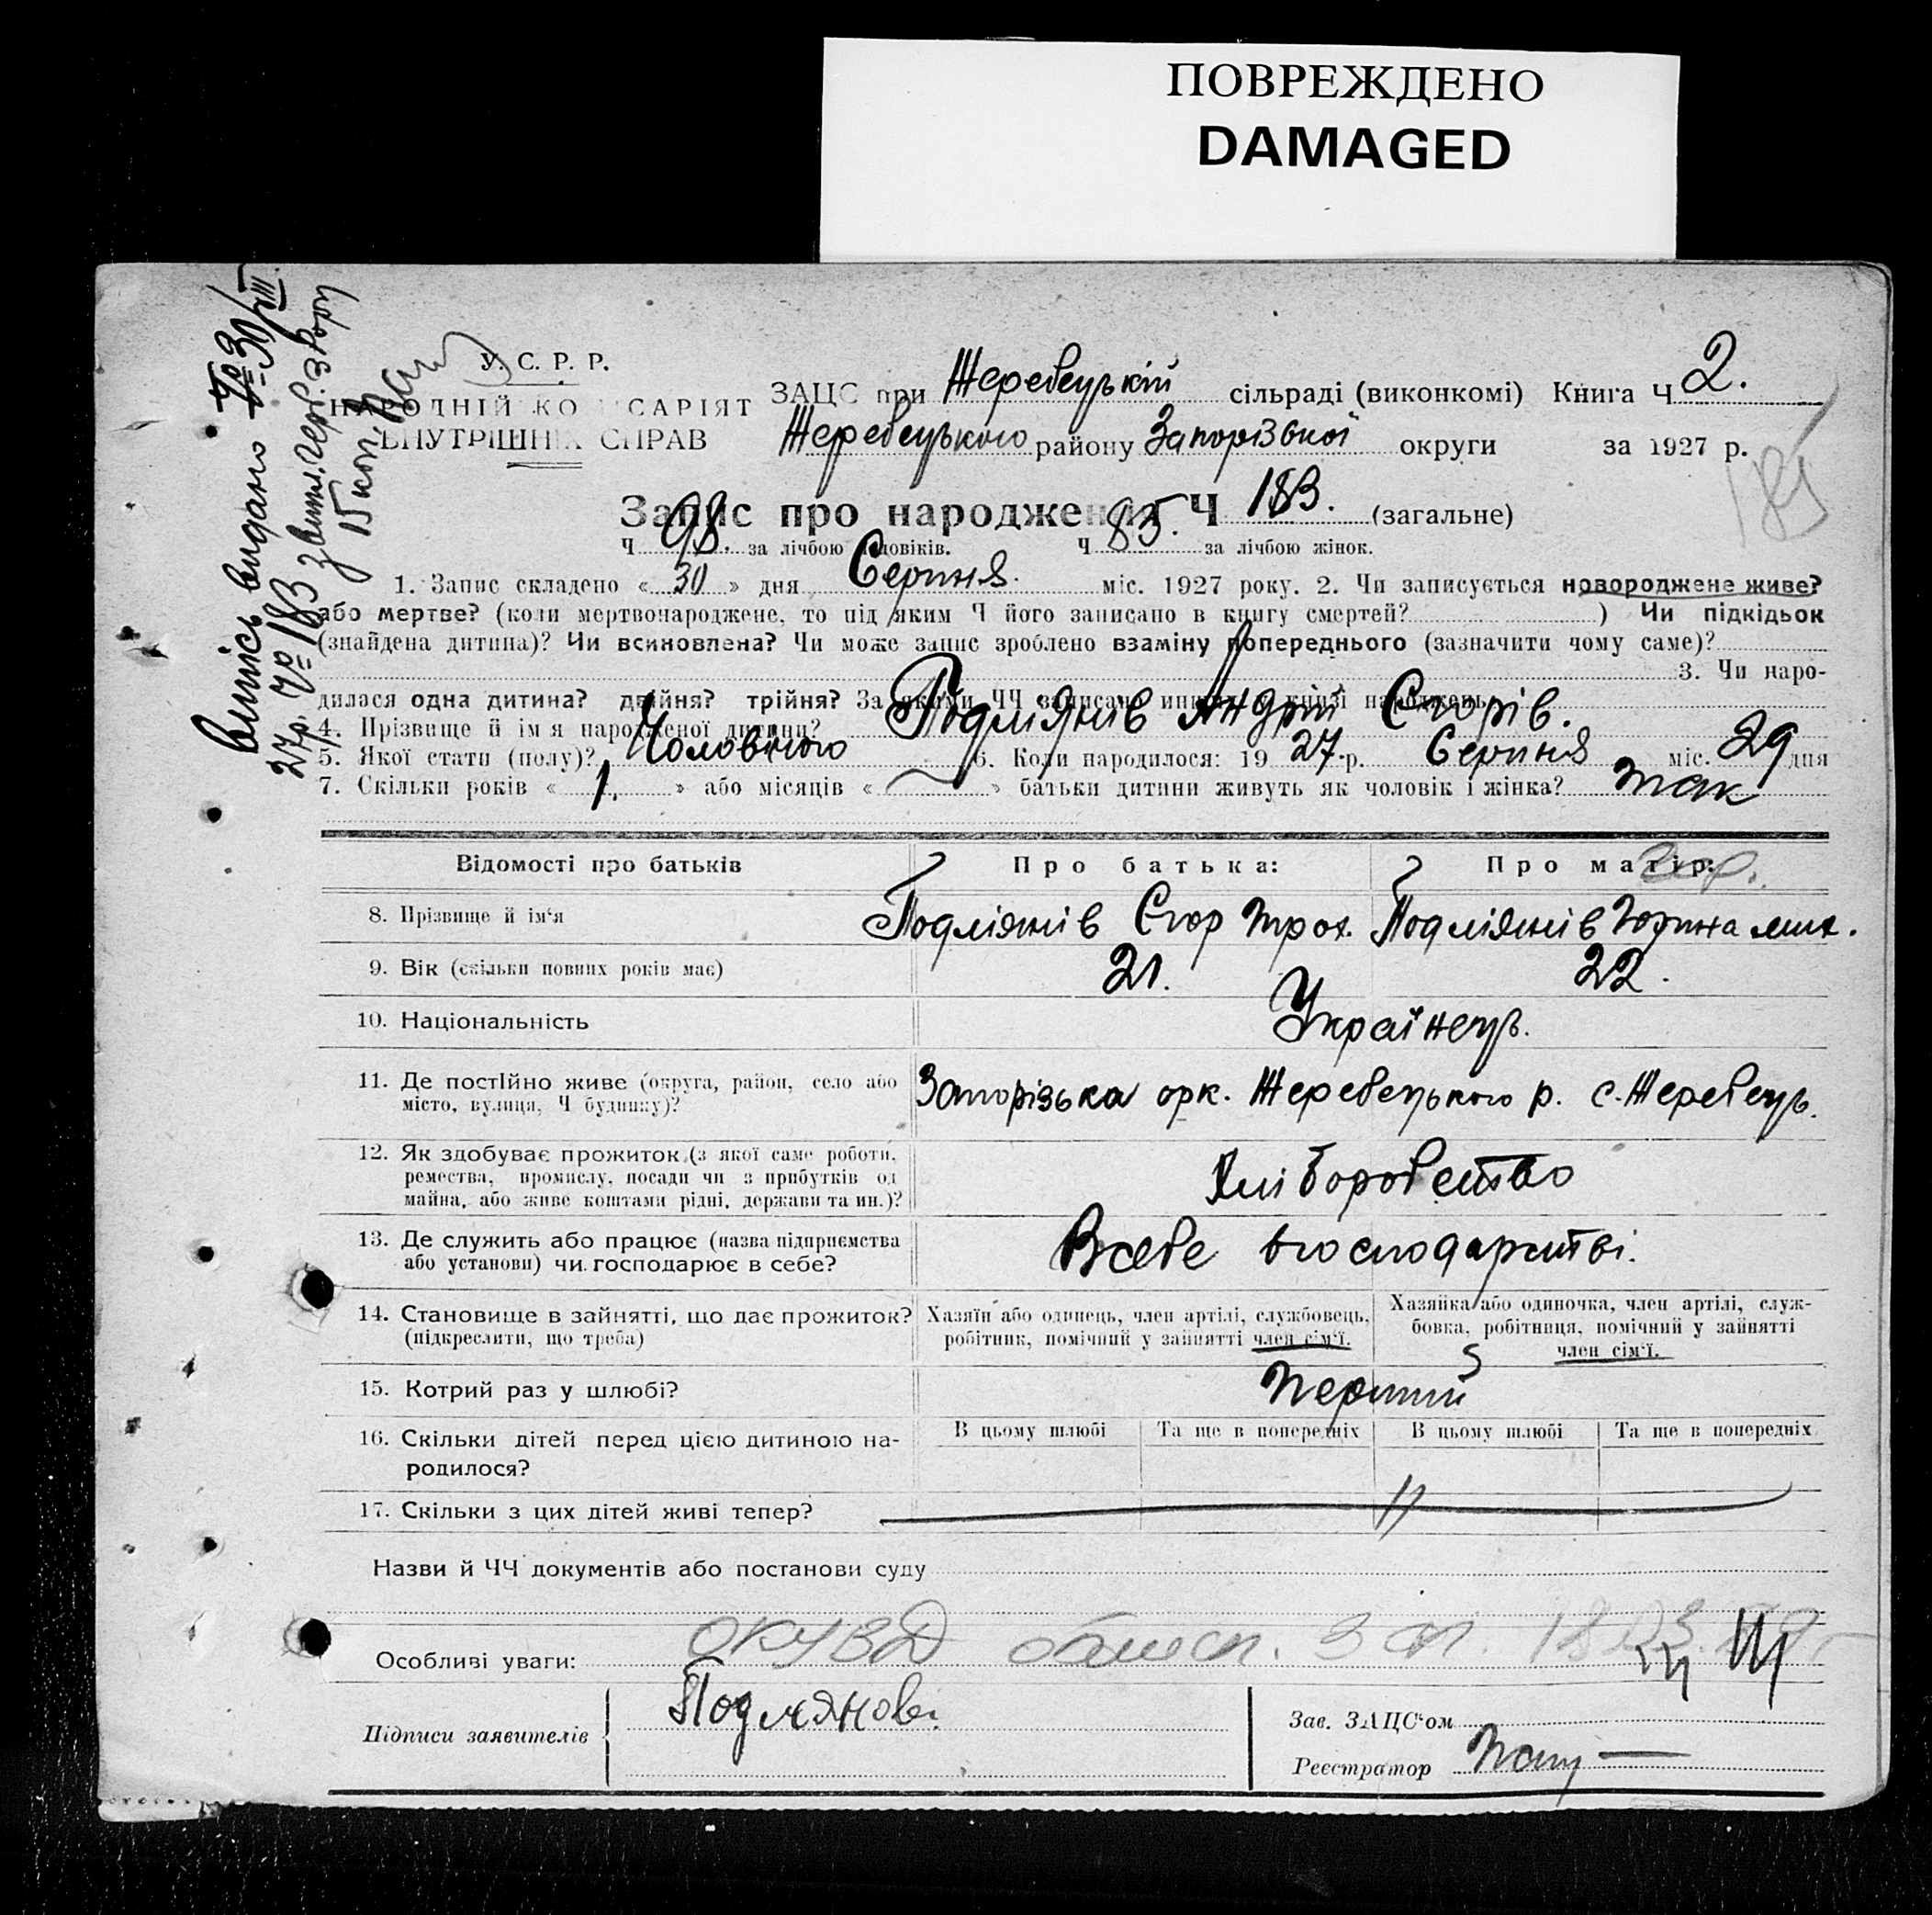 ПОВРЕЖДЕНО
DAMAGED
У. С. Р. Р.
НАРОДНІЙ КОМІСАРІЯТ
ВНУТРІШНІХ СПРАВ
ЗАЦС при Жеребецькій сільраді (виконкомі) Книга Ч 2.
Жеребецького району Запорізької округи за 1927 р.
Запис про народження Ч 183. (загальне)
185
Ч 98. за лічбою чоловіків. Ч 85. за лічбою жінок.
Випісь видано
27р. № 183
15 коп.
1. Запис складено «30» дня Серпня. міс. 1927 року. 2. Чи записується новороджене живе?
або мертве? (коли мертвонароджене, то під яким Ч його записано в книгу смертей? ) Чи підкідьок
(знайдена дитина)? Чи всиновлена? Чи може запис зроблено взаміну попереднього (зазначити чому саме)?
3. Чи наро-
дилася одна дитина? двійня? трійня? За якими ЧЧ записані инші в книзі народжень
4. Прізвище й ім'я народженої дитини? Подліянів Андрій Єгорів.
5. Якої стати (полу)? Чоловічого 6. Коли народилося: 19 27 р. Серпня міс. 29 дня
7. Скільки років « 1. » або місяців « » батьки дитини живуть як чоловік і жінка? так
Відомості про батьків Про батька: Про матір:
8. Прізвище й ім'я Подліянів Єгор Трох. Подліянів мих.
9. Вік (скільки повних років має) 21. 22.
10. Національність Українець.
11. Де постійно живе (округа, район, село або Запорізька орк. Жеребецького р. с. Жеребець.
місто, вулиця, Ч будинку)?
12. Як здобуває прожиток (з якої саме роботи,
ремества, промислу, посади чи з прибутків од
майна, або живе коштами рідні, держави та ин.)? Хліборобство
13. Де служить або працює (назва підприємства
або установи) чи господарює в себе? Всебе вгосподарстві.
14. Становище в зайнятті, що дає прожиток? Хазяїн або одинець, член артілі, службовець, Хазяйка або одиночка, член артілі, служ-
(підкреслити, що треба) робітник, помічний у зайнятті член сім'ї. бовка, робітниця, помічний у зайнятті
член сім'ї.
15. Котрий раз у шлюбі? Перший
16. Скільки дітей перед цією дитиною на- В цьому шлюбі Та ще в попередніх В цьому шлюбі Та ще в попередніх
родилося?
17. Скільки з цих дітей живі тепер?
Назви й ЧЧ документів або постанови суду
Особливі уваги:
Підписи заявителів Подлянов.
Зав. ЗАЦС'ом
Реєстратор